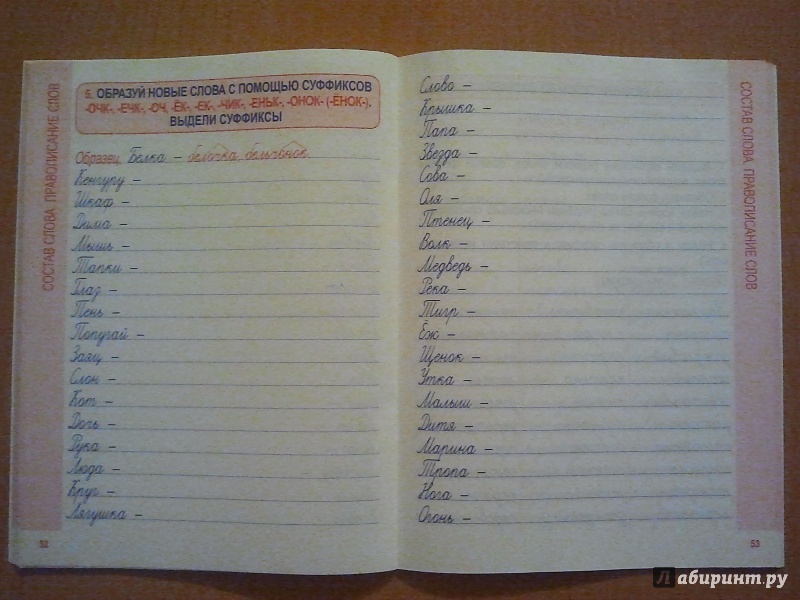 СОСТАВ СЛОВА. ПРАВОПИСАНИЕ СЛОВ
5. ОБРАЗУЙ НОВЫЕ СЛОВА С ПОМОЩЬЮ СУФФИКСОВ
-ОЧК-, -ЕЧК-, -ОЧ, -ЁК-, -ЕК-, -ЧИК-, -ЕНЬК-, -ОНОК- (-ЁНОК-).
ВЫДЕЛИ СУФФИКСЫ
Образец. Белка – белочка, бельчонок.
Кенгуру –
Шкаф –
Дима –
Мышь –
Тапки –
Глаз –
Пень –
Попугай –
Заяц –
Слон –
Кот –
Дочь –
Рука –
Люда –
Круг –
Лягушка –
52
Слово –
Крышка –
Папа –
Звезда –
Сова –
Оля –
Птенец –
Волк –
Медведь –
Река –
Тигр –
Ёж –
Щенок –
Утка –
Малыш –
Дитя –
Марина –
Тропа –
Нога –
Огонь –
53
СОСТАВ СЛОВА. ПРАВОПИСАНИЕ СЛОВ
Лабиринт.ру